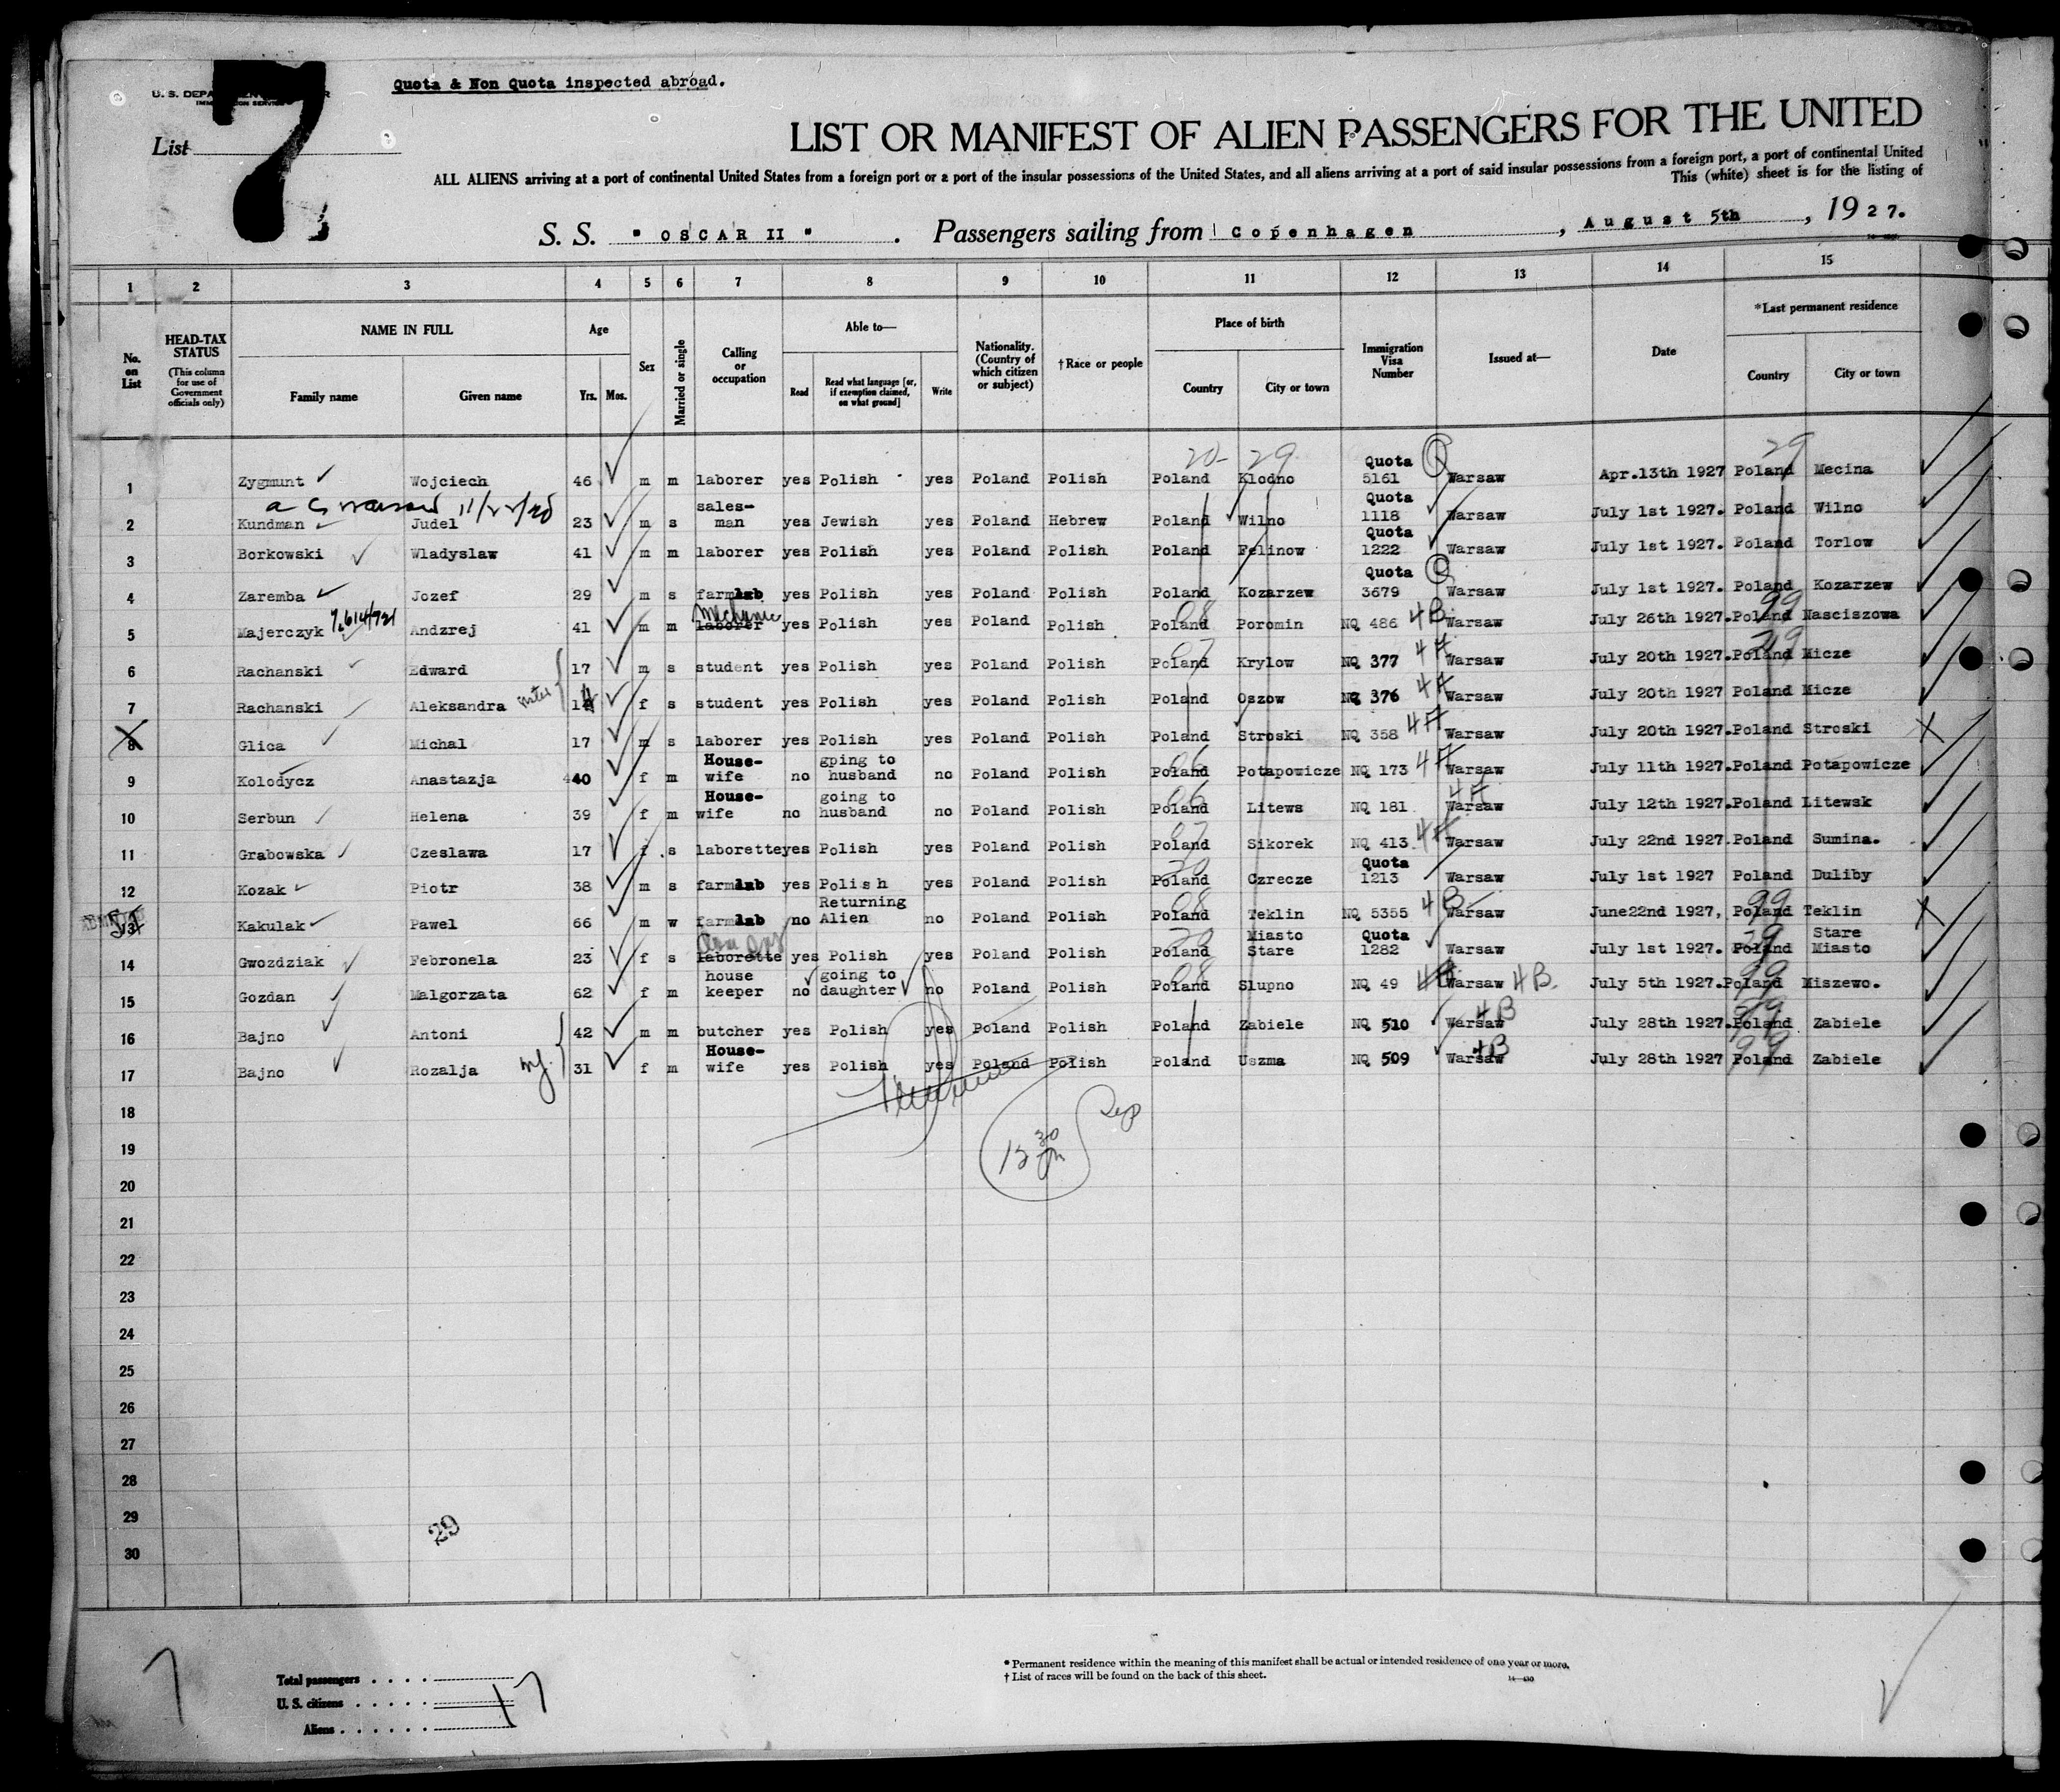 Quota & Non Quota inspected abroad.
List 7
LIST OR MANIFEST OF ALIEN PASSENGERS FOR THE UNITED
ALL ALIENS arriving at a port of continental United States from a foreign port or a port of the insular possessions of the United States, and all aliens arriving at a port of said insular possessions from a foreign port, a port of continental United
This (white) sheet is for the listing of
S. S. " OSCAR II " . Passengers sailing from Copenhagen , August 5th , 1927.
1 2 3 4 5 6 7 8 9 10 11 12 13 14 15
No. on List
HEAD-TAX STATUS (This column for use of Government officials only)
NAME IN FULL Family name Given name
Age Yrs. Mos.
Sex
Married or single
Calling or occupation
Able to— Read Read what language [or, if exemption claimed, on what ground] Write
Nationality. (Country of which citizen or subject)
†Race or people
Place of birth Country City or town
Immigration Visa Number
Issued at—
Date
*Last permanent residence Country City or town
20- 29 29
1 Zygmunt Wojciech 46 m m laborer yes Polish yes Poland Polish Poland Klodno Quota 5161 Warsaw Apr.13th 1927 Poland Mecina
2 Kundman Judel 23 m s sales-man yes Jewish yes Poland Hebrew Poland Wilno Quota 1118 Warsaw July 1st 1927. Poland Wilno
3 Borkowski Wladyslaw 41 m m laborer yes Polish yes Poland Polish Poland Felinow Quota 1222 Warsaw July 1st 1927. Poland Torlow
4 Zaremba Jozef 29 m s farmlab yes Polish yes Poland Polish Poland Kozarzew Quota 3679 Warsaw July 1st 1927. Poland Kozarzew
5 Majerczyk Andzrej 41 m m laborer mechanic yes Polish yes Poland Polish Poland 08 Poromin NQ 486 4B Warsaw July 26th 1927. Poland 99 Nasciszowa
6 Rachanski Edward 17 m s student yes Polish yes Poland Polish Poland 07 Krylow NQ 377 4A Warsaw July 20th 1927. Poland Micze
7 Rachanski Aleksandra sister 14 f s student yes Polish yes Poland Polish Poland Oszow NQ 376 4A Warsaw July 20th 1927 Poland Micze
8 Glica Michal 17 m s laborer yes Polish yes Poland Polish Poland Stroski NQ 358 4A Warsaw July 20th 1927. Poland Stroski
9 Kolodycz Anastazja 40 f m House-wife no gping to husband no Poland Polish Poland 06 Potapowicze NQ 173 4A Warsaw July 11th 1927. Poland Potapowicze
10 Serbun Helena 39 f m House-wife no going to husband no Poland Polish Poland 06 Litews NQ 181 4A Warsaw July 12th 1927. Poland Litewsk
11 Grabowska Czeslawa 17 f s laborette yes Polish yes Poland Polish Poland 07 Sikorek NQ 413 4A Warsaw July 22nd 1927. Poland Sumina.
12 Kozak Piotr 38 m s farmlab yes Polish yes Poland Polish Poland 20 Czrecze Quota 1213 Warsaw July 1st 1927 Poland Duliby
Kakulak Pawel 66 m w farmlab no Returning Alien no Poland Polish Poland 08 Teklin NQ 5355 4B Warsaw June22nd 1927, Poland 99 Teklin
14 Gwozdziak Febronela 23 f s laborette yes Polish yes Poland Polish Poland 20 Miasto Stare Quota 1282 Warsaw July 1st 1927. Poland Stare Miasto
15 Gozdan Malgorzata 62 f m house keeper no going to daughter no Poland Polish Poland 08 Slupno NQ 49 Warsaw 4B. July 5th 1927. Poland 99 Miszewo.
16 Bajno Antoni 42 m m butcher yes Polish yes Poland Polish Poland Zabiele NQ 510 Warsaw 4B July 28th 1927. Poland 99 Zabiele
17 Bajno Rozalja 31 f m House-wife yes Polish yes Poland Polish Poland Uszma NQ 509 Warsaw 4B July 28th 1927 Poland 99 Zabiele
18
19
20
21
22
23
24
25
26
27
28
29
30
29
Total passengers
U. S. citizens 17
Aliens
* Permanent residence within the meaning of this manifest shall be actual or intended residence of one year or more.
† List of races will be found on the back of this sheet.